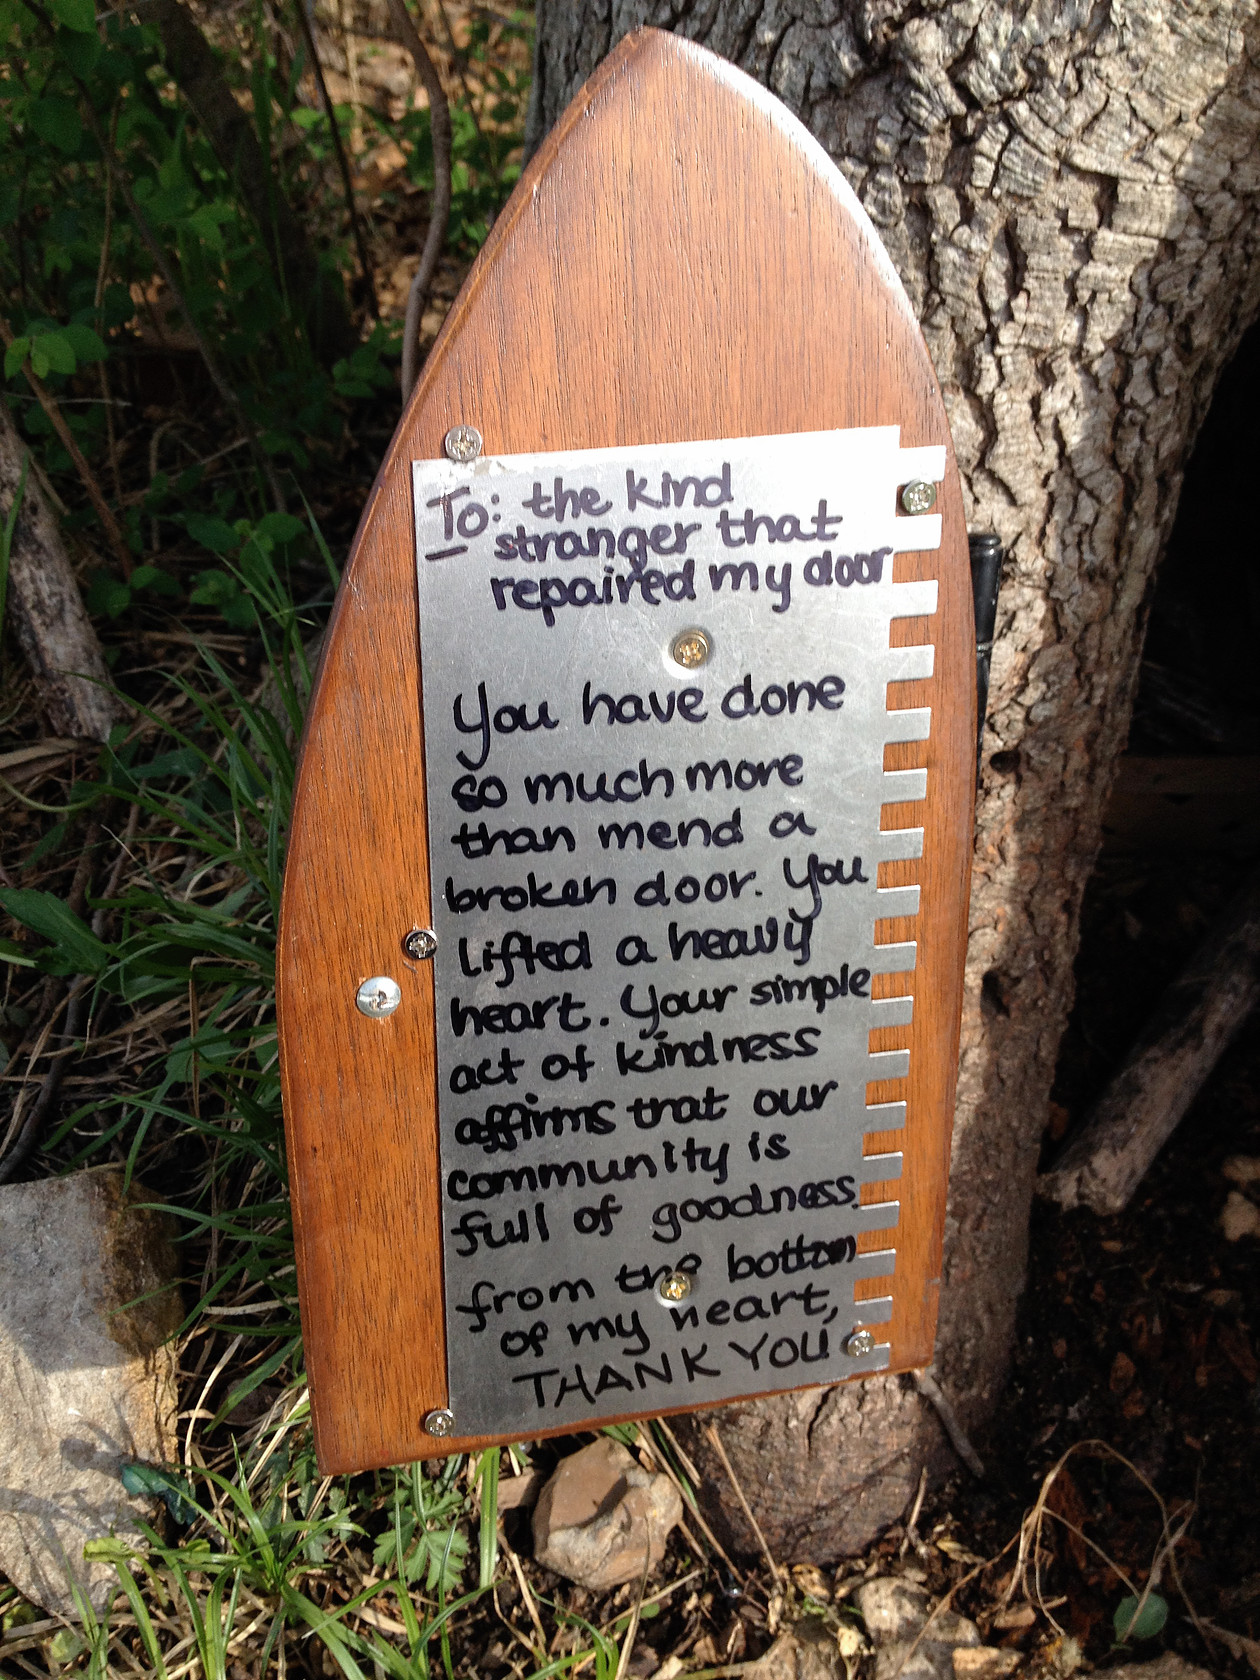 To: the kind
stranger that
repaired my door
You have done
so much more
than mend a
broken door. You
lifted a heavy
heart. Your simple
act of kindness
affirms that our
community is
full of goodness.
from the bottom
of my heart,
THANK YOU!